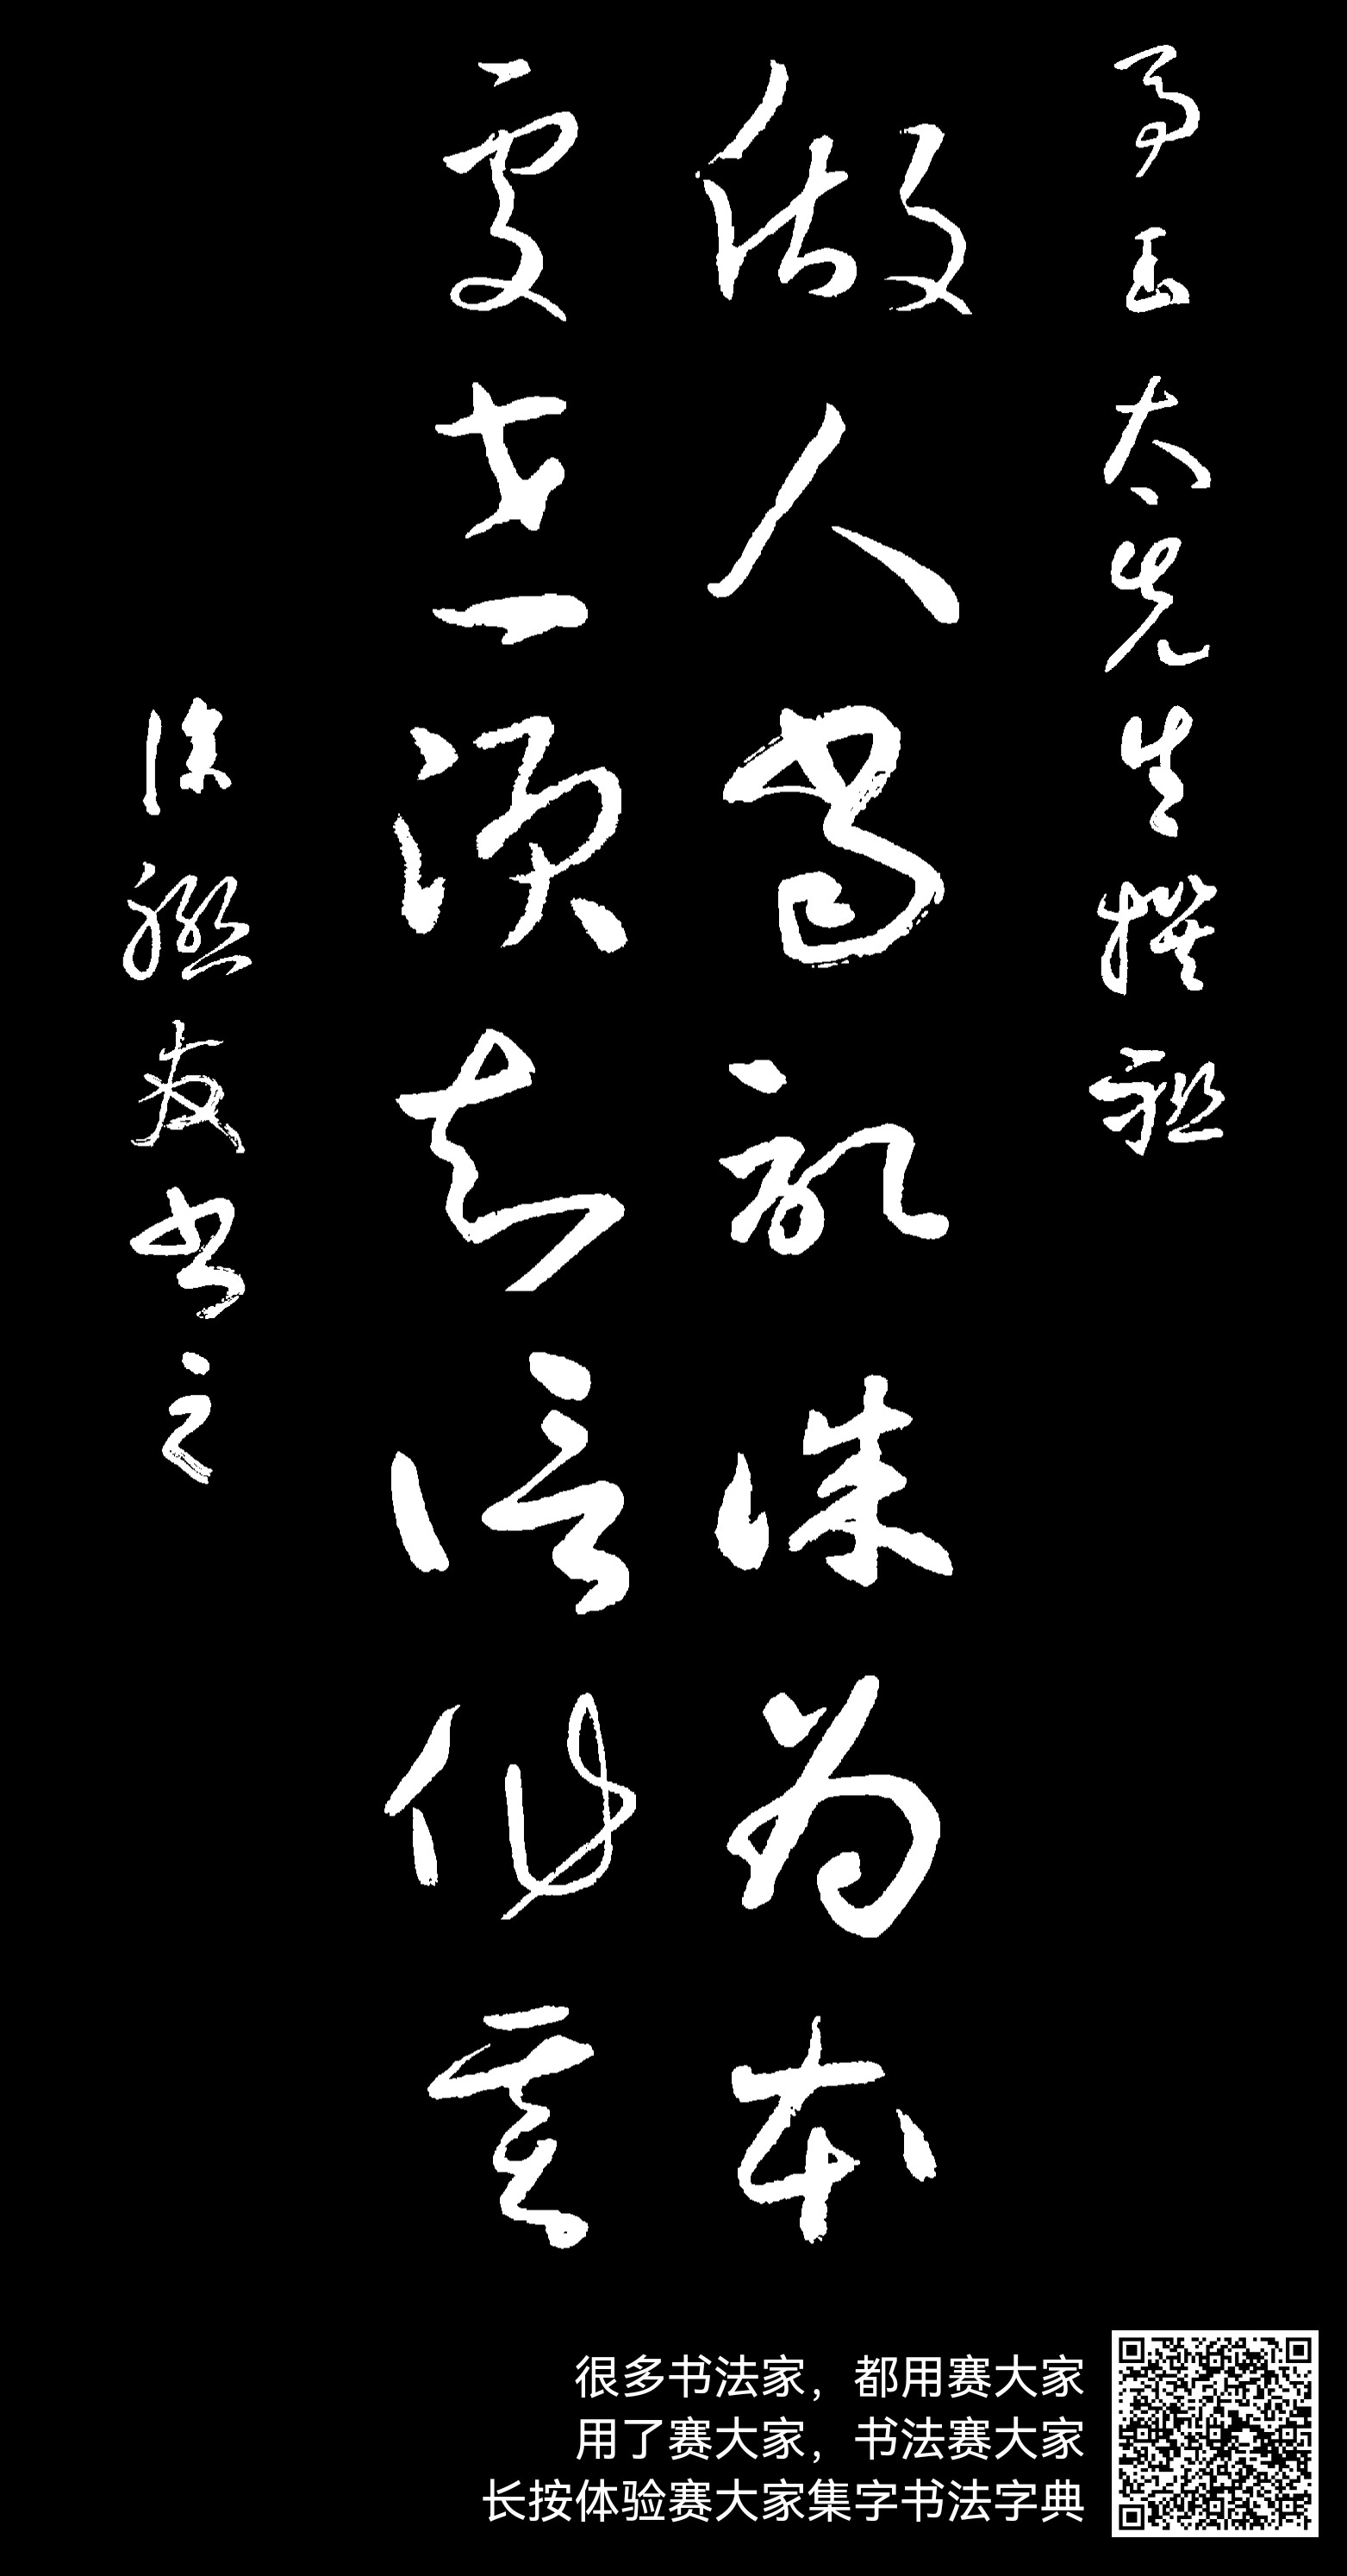 玉太先生撰联
做人当诚为本
处世须知信作基
徐联友书之
很多书法家，都用赛大家
用了赛大家，书法赛大家
长按体验赛大家集字书法字典